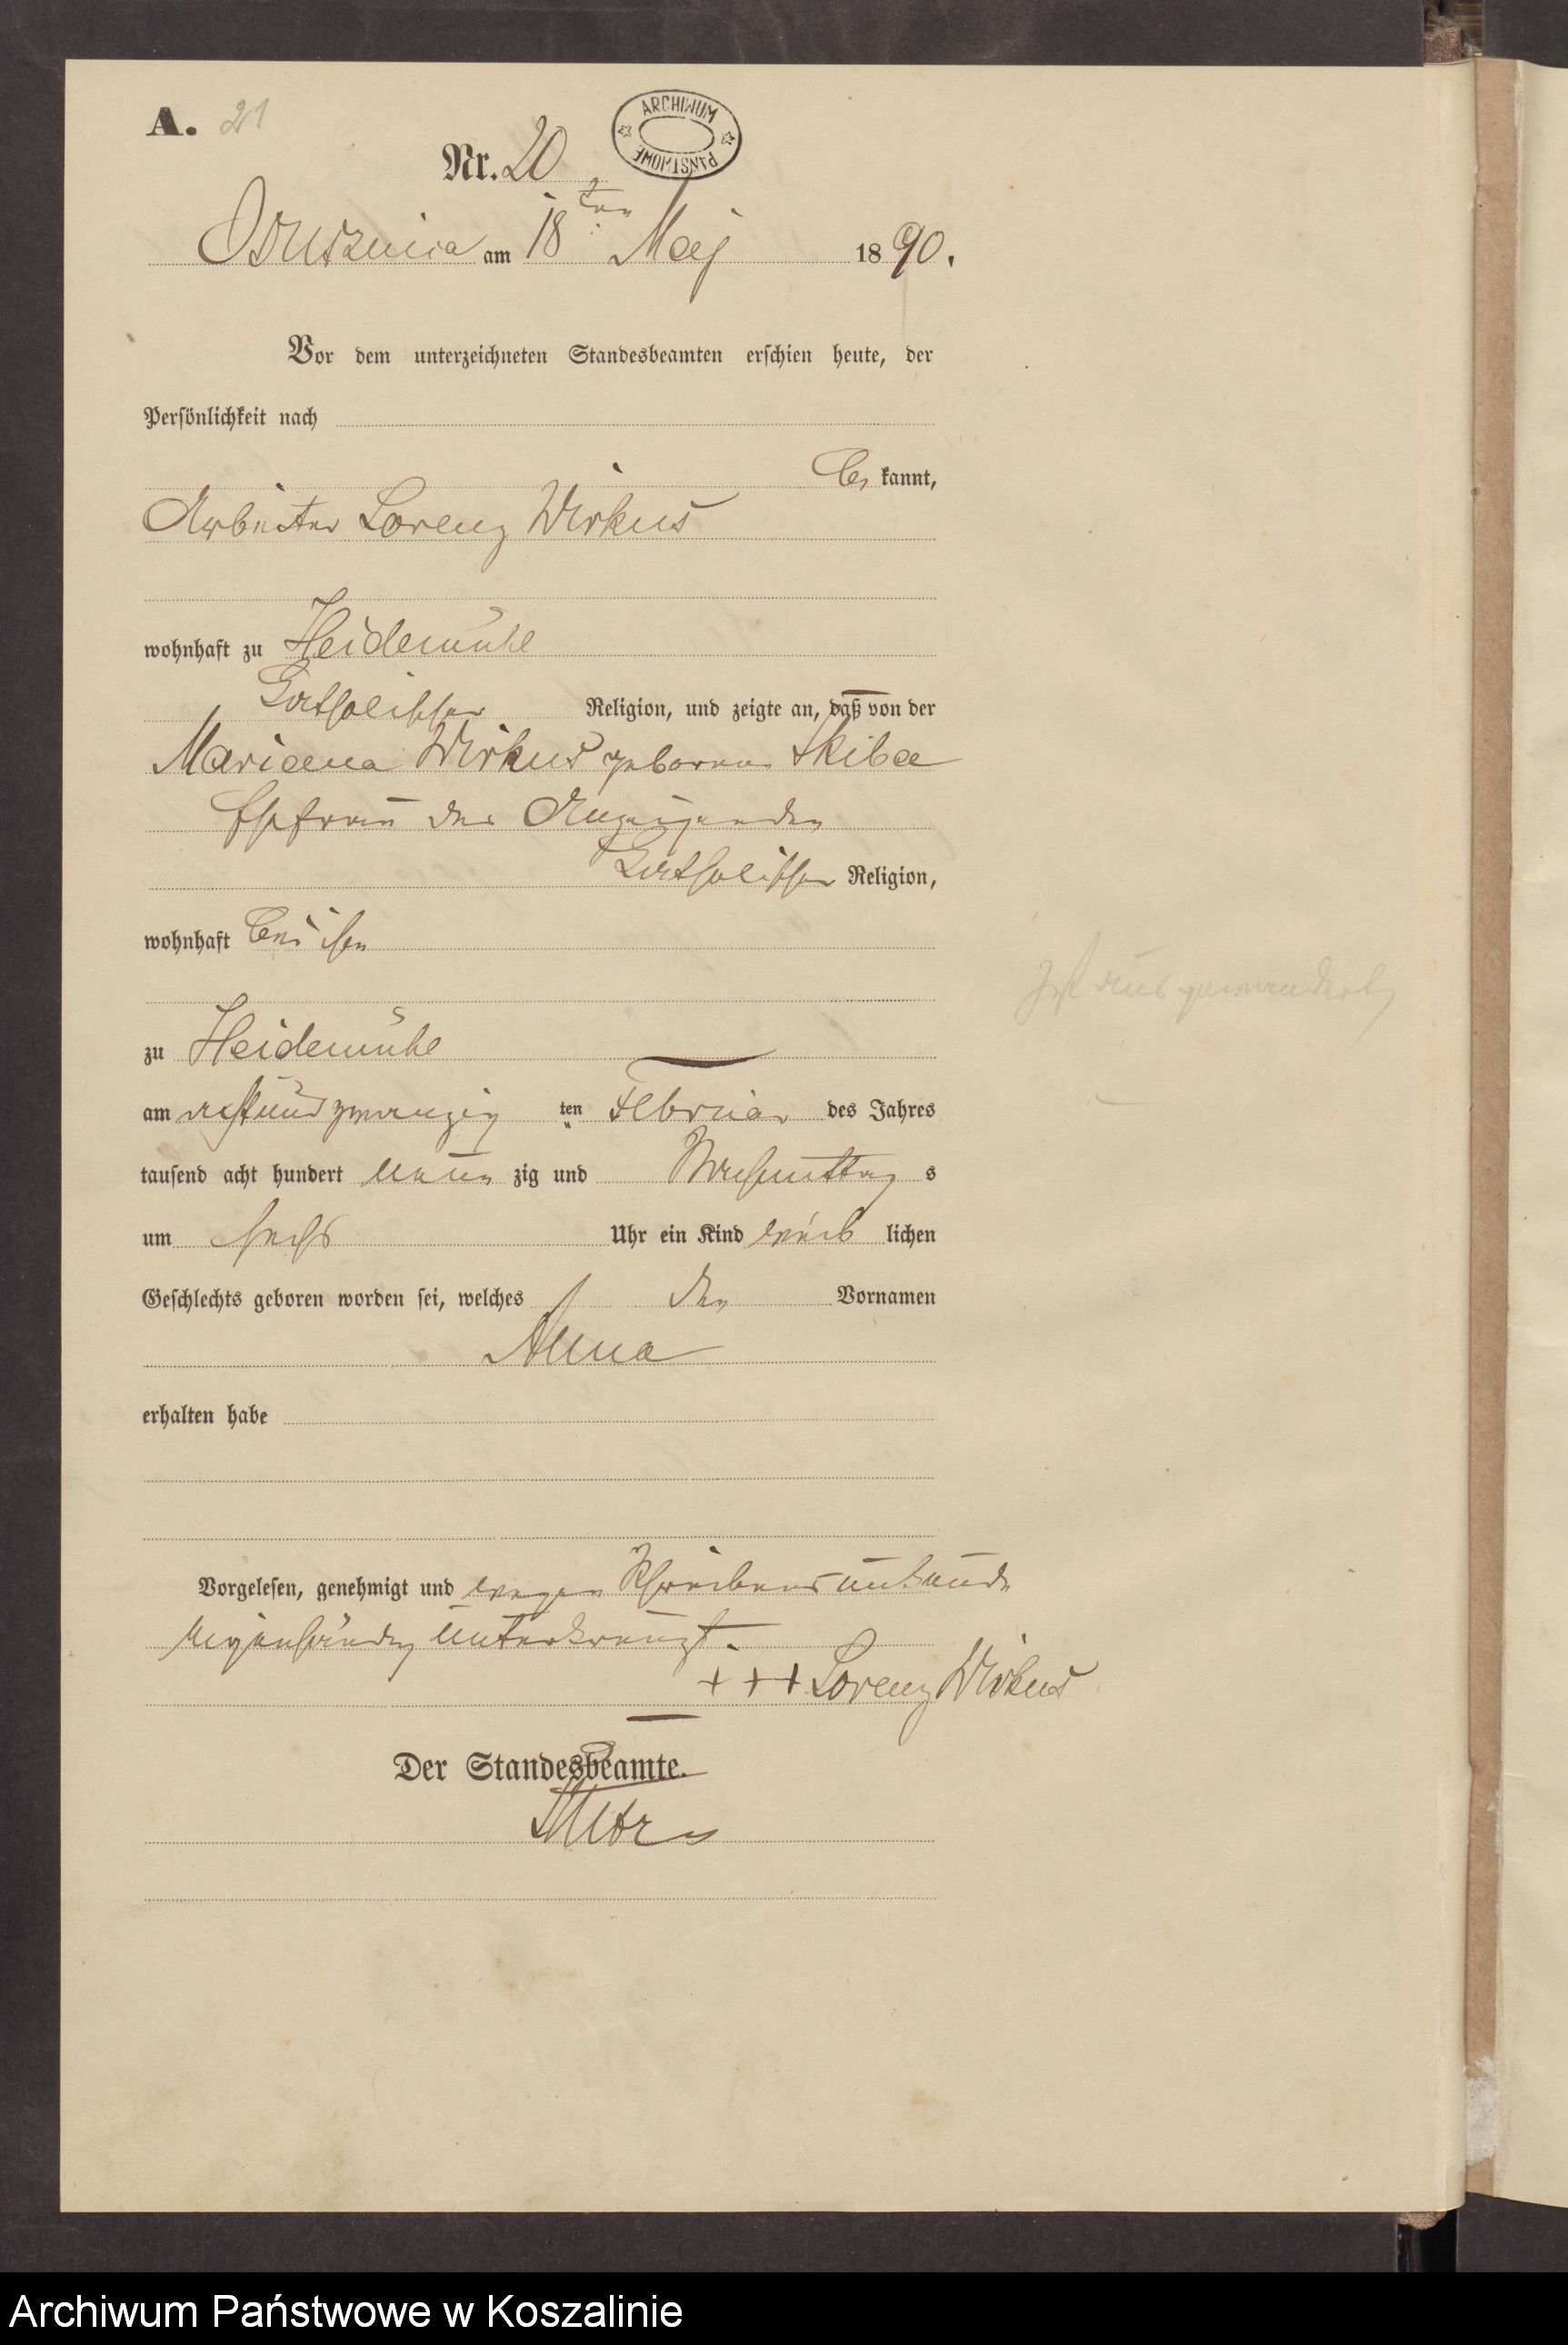 A. 21
ARCHIWUM PAŃSTWOWE
Nr. 20
Osusznica am 18ten Maj 1890.
Vor dem unterzeichneten Standesbeamten erschien heute, der
Persönlichkeit nach
be kannt,
Arbeiter Lorenz Wirkus
wohnhaft zu Heidemühl
Katholischer Religion, und zeigte an, daß von der
Marianna Wirkus geborene Skiba
Ehefrau des Anzeigenden
Katholischer Religion,
wohnhaft bei ihm
zu Heidemühl
am achtundzwanzig ten Februar des Jahres
tausend acht hundert neun zig und Nachmittag s
um sechs Uhr ein Kind weib lichen
Geschlechts geboren worden sei, welches den Vornamen
Anna
erhalten habe
Vorgelesen, genehmigt und wegen Schreibensunkunde
eigenhändig unterkreuzt.
+++ Lorenz Wirkus
Ist ausgewandert
Der Standesbeamte.
Archiwum Państwowe w Koszalinie